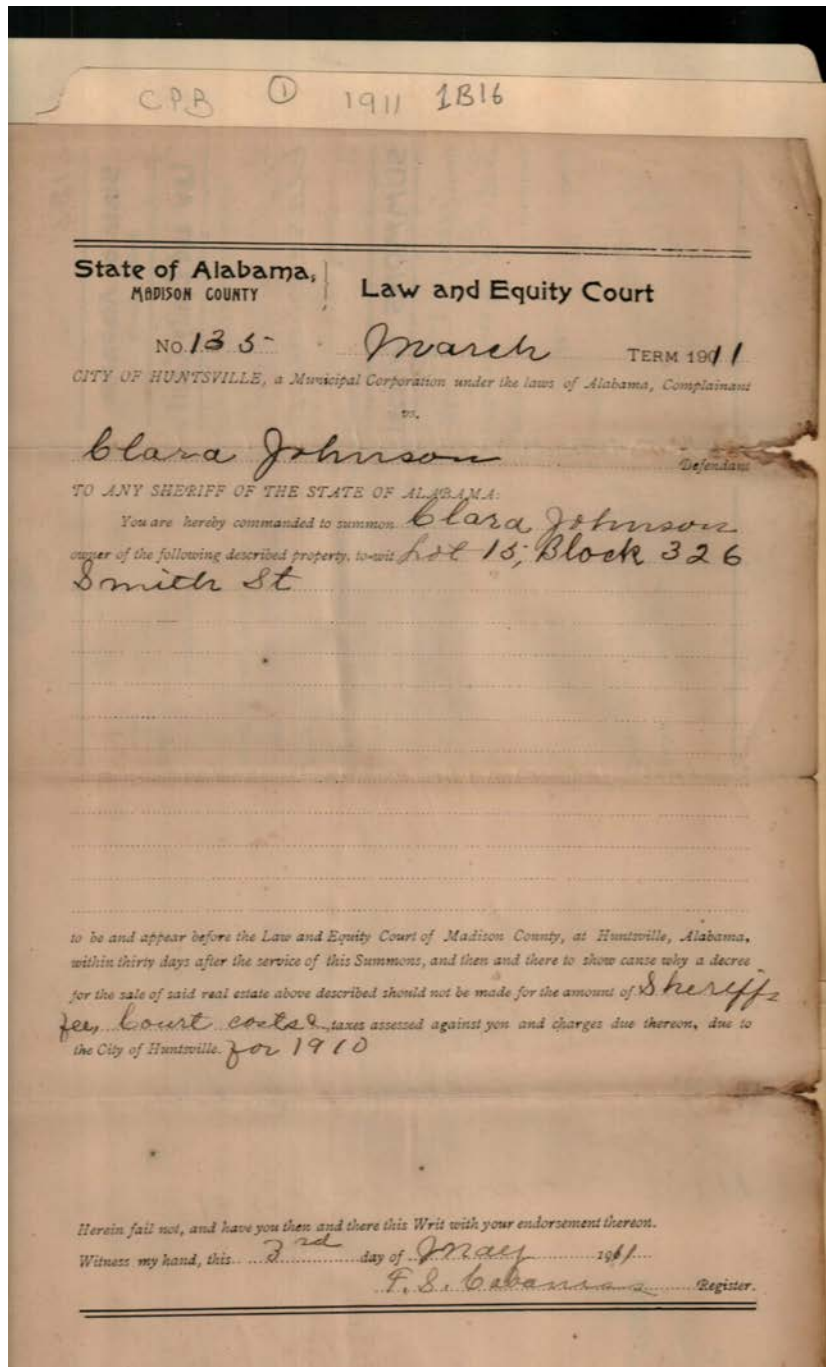 CPB ① 1911 1B16
State of Alabama, Law and Equity Court
MADISON COUNTY
No. 135 March TERM 1911
CITY OF HUNTSVILLE, a Municipal Corporation under the laws of Alabama, Complainant
vs.
Clara Johnson Defendant
TO ANY SHERIFF OF THE STATE OF ALABAMA:
You are hereby commanded to summon Clara Johnson
owner of the following described property, to-wit Lot 15, Block 326
Smith St
to be and appear before the Law and Equity Court of Madison County, at Huntsville, Alabama,
within thirty days after the service of this Summons, and then and there to show cause why a decree
for the sale of said real estate above described should not be made for the amount of Sheriffs
fee, Court costs & taxes assessed against you and charges due thereon, due to
the City of Huntsville. for 1910
Herein fail not, and have you then and there this Writ with your endorsement thereon.
Witness my hand, this 3rd day of May 1911
F. S. Cabaniss Register.